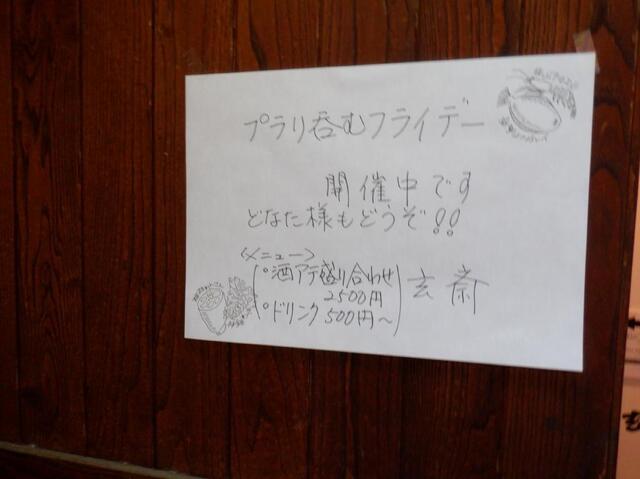 プラリ呑むフライデー
開催中です
どなた様もどうぞ!!
<メニュー>
○酒アテ盛り合わせ
2500円
○ドリンク 500円~
玄斎